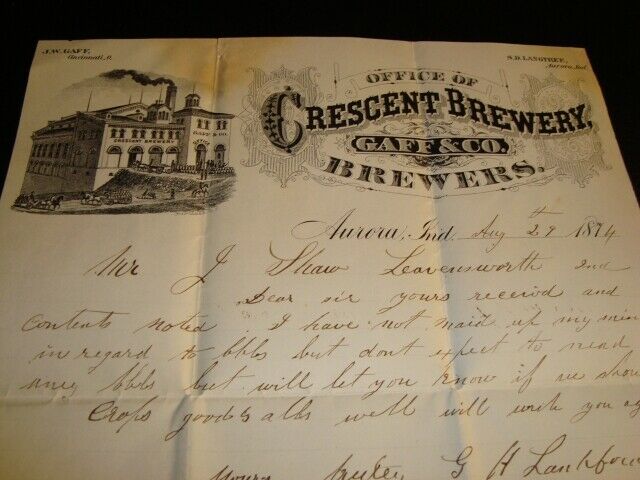 J.W. GAFF,
Cincinnati, O.
S.D. LANGTREE,
Aurora, Ind.
OFFICE OF
CRESCENT BREWERY,
GAFF & CO.
BREWERS.
GAFF & CO.
CRESCENT BREWERY
Aurora, Ind. Aug 29th 1874
Mr J Shaw Leavensworth Ind
Dear sir yours receivd and
contents noted I have not maid up my min
in regard to bbls but dont expect to nead
any bbls but will let you know if we shou
Crops goods alls well will write you
Yours G H